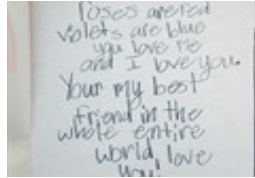 roses are red
violets are blue
you love me
and I love you.
Your my best
friend in the
whole entire
world, love
you.